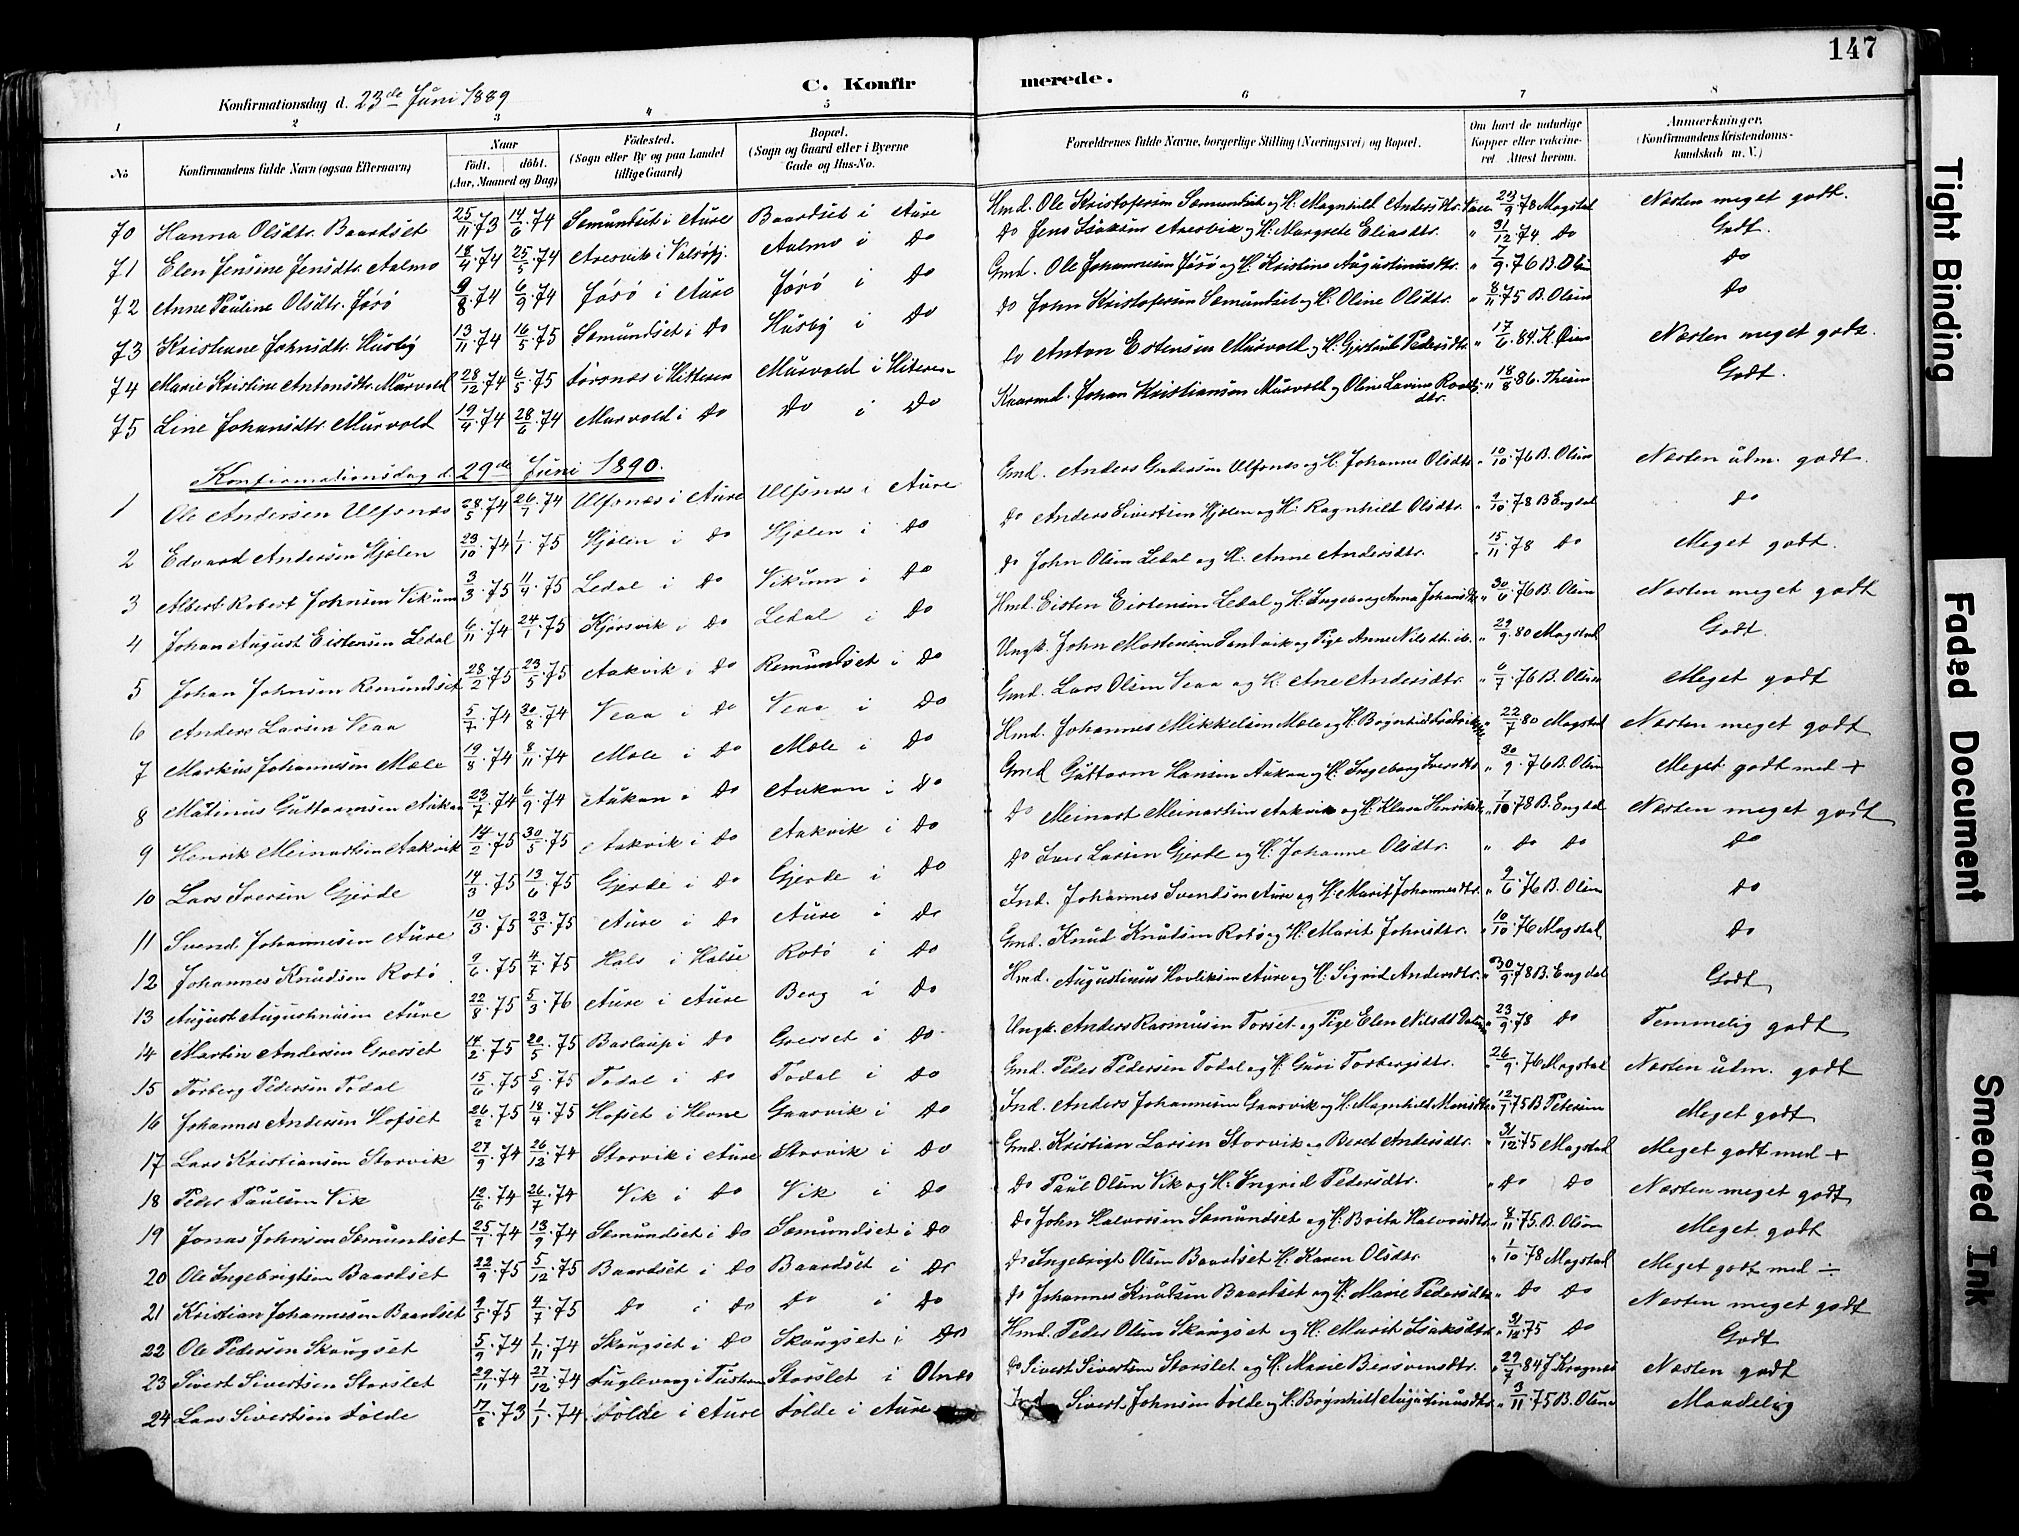 147
C. Konfirmerede.
Konfirmationsdag d. 23de Juni 1889
1 2 3 4 5 6 7 8
No Konfirmandens fulde Navn (ogsaa Efternavn) Naar födt. döbt. (Aar, Maaned og Dag) Födested. (Sogn eller By og paa Landet tillige Gaard) Bopæl. (Sogn og Gaard eller i Byerne Gade og Hus-No. Forældrenes fulde Navne, borgerlige Stilling (Næringsvei) og Bopæl. Om havt de naturlige Kopper eller vakcineret. Attest herom. Anmærkninger. (Konfirmandens Kristendomskundskab m. V.)
70 Hanna Olsdtr. Baardset 25/11 73 14/6 74 Semundset i Aure Baardset i Aure Hmd. Ole Kristofersen Semundset og H. Magnhild Andersdtr. Vac. 29/9 78 Magstad Næsten meget godt.
71 Elen Jensine Jensdtr. Aalmo 18/4 74 25/5 74 Aresvik i Valsøfj. Aalmo i Do Do Jens Isaksen Aresvik og H. Margrete Eliasdtr. " 31/12 74 Do Godt.
72 Anne Pauline Olsdtr. Jørø 9/8 74 6/9 74 Jørø i Aure Jørø i Do Gmd. Ole Johannesen Jørø og H. Kristine Augustinusdtr. " 7/9 76 B. Olsen Do
73 Kristiane Johnsdtr. Husby 13/11 74 16/5 75 Semundset i Do Husby i Do Do John Kristofersen Semundset og H. Oline Olsdtr. " 8/11 75 B. Olsen Do
74 Marie Kristine Antonsdtr. Murvold 28/12 74 6/5 75 i Hitteren Murvold i Hiteren Do Anton Estensen Murvold og H. Gjertrud Pedersdtr. " 17/6 84 K. Næsten meget godt.
75 Line Johansdtr. Murvold 19/4 74 28/6 74 Murvold i Do Do i Do Kaarmd. Johan Kristiansen Murvold og Oline Lavine dtr. " 18/8 86 Godt.
Konfirmationsdag d. 29de Juni 1890.
1 Ole Andersen Ulfsnes 28/5 74 26/7 74 Ulfsnes i Aure Ulfsnes i Aure Gmd. Anders Andersen Ulfsnes og H. Johanne Olsdtr. " 10/10 76 B. Olsen Næsten udm. godt.
2 Edvard Andersen Hjelen 23/10 74 1/1 75 Hjelen i Do Hjelen i Do Do Anders Sivertsen Hjelen og H. Ragnhild Olsdtr. " 9/10 78 B Engdal Do
3 Albert Robert Johnsen Vikum 3/3 75 11/4 75 Ledal i Do Vikum i Do Do John Olsen Ledal og H. Anne Andersdtr. " 15/11 78 Do Meget godt.
4 Johan August Eistensen Ledal 6/11 74 24/1 75 Kjørsvik i Do Ledal i Do Hmd. Eisten Eistensen Ledal og H. Ingeborg Anna " 30/6 76 B. Olsen Næsten meget godt
5 Johan Johnsen Remundset 28/2 75 23/5 75 Aakvik i Do Remundset i Do Ungk. John Mortensen Sandvik og Pige Anne Nilsdtr. ib. " 29/9 80 Magstad Godt.
6 Anders Larsen Veaa 5/7 74 30/8 74 Veaa i Do Veaa i Do Gmd. Lars Olsen Veaa og H. Ane Andersdtr. " 6/7 76 B. Olsen Meget godt
7 Markus Johannesen Mele 19/8 74 8/11 74 Mele i Do Mele i Do Hmd. Johannes Mikkelsen Mele og H. Brynhild " 22/7 80 Magstad Næsten meget godt
8 Matinus Guttormsen Aukan 23/7 74 6/9 74 Aukan i Do Aukan i Do Gmd Guttorm Hansen Aukan og H. Ingeborg Iversdtr. " 30/9 76 B. Olsen Meget godt med +
9 Henrik Meinartsen Aakvik 14/2 75 30/5 75 Aakvik i Do Aakvik i Do Do Meinart Meinartsen Aakvik og H. Klara Henriksdtr. " 7/10 78 B. Engdal Næsten meget godt
10 Lars Iversen Gjerde 14/3 75 13/6 75 Gjerde i Do Gjerde i Do Do Iver Larsen Gjerde og H. Johanne Olsdtr. " Do Do Do
11 Svend Johannesen Aure 10/3 75 23/5 75 Aure i Do Aure i Do Ind. Johannes Svendsen Aure og H. Marit Johannesdtr. " 9/6 76 B. Olsen Do
12 Johannes Knudsen Rotø 9/6 75 4/7 75 Hals i Halse Rotø i Do Gmd. Knud Knudsen Rotø og H. Marit Johnsdtr. " 10/10 76 Magstad Do
13 August Augustinusen Aure 22/8 75 5/3 76 Aure i Aure Berg i Do Hmd. Augustinus Havliksen Aure og H. Sigrid Andersdtr. " 30/9 78 B. Engdal Godt
14 Martin Andersen Gresset 14/2 75 20/5 75 Baslaup i Do Gresset i Do Ungk. Anders Rasmusen Torset og Pige Elen Nilsdtr " 23/9 78 Do Temmelig godt
15 Torberg Pedersen Todal 15/6 75 5/9 75 Todal i Do Todal i Do Gmd. Peder Pedersen Todal og H. Guri Torbergsdtr. " 26/9 76 Magstad Næsten udm. godt
16 Johannes Andersen Hofset 26/2 75 18/4 75 Hofset i Hevne Gaarvik i Do Ind. Anders Johannesen Gaarvik og H. Magnhild " 12/7 75 B Petersen Meget godt
17 Lars Kristiansen Storvik 27/9 74 26/12 74 Storvik i Aure Storvik i Do Gmd. Kristian Larsen Storvik og Beret Andersdtr. " 31/12 75 Magstad Meget godt med +
18 Peder Paulsen Vik 12/6 74 26/7 74 Vik i Do Vik i Do Do Paul Olsen Vik og H. Ingrid Pedersdtr. " Do Do Næsten meget godt
19 Jonas Johnsen Semundset 25/7 74 13/9 74 Semundset i Do Semundset i Do Do John Halvorsen Semundset og H. Brita Halvorsdtr " 8/11 75 B. Olsen Meget godt
20 Ole Ingebrigtsen Baardset 22/9 75 5/12 75 Baardset i Do Baardset i Do Do Ingebrigt Olsen Baardset H. Karen Olsdtr. " 1/10 78 Magstad Meget godt med ÷
21 Kristian Johannesen Baardset 9/5 75 4/7 75 Do i Do Do i Do Do Johannes Knudsen Baardset og H. Marie Pedersdtr " Do Do Næsten meget godt
22 Ole Pedersen Skaugset 5/9 74 1/11 74 Skaugset i Do Skaugset i Do Hmd. Peder Olsen Skaugset og H. Marit Isaksdtr " 31/12 75 Do Godt
23 Sivert Sivertsen Storslet 29/11 74 27/12 74 Fuglevaag i Tustern Storslet i Do Sivert Sivertsen Storslet og H. Marie Bersvensdtr. " 29/7 84 J Næsten godt
24 Lars Sivertsen Folde 17/8 73 1/1 74 Folde i Aure Folde i Aure Ind. Sivert Johnsen Folde og H. Brynhild Augustinusdtr " 3/11 75 B. Olsen Maadelig
Tight Binding
Faded Document
Smeared Ink